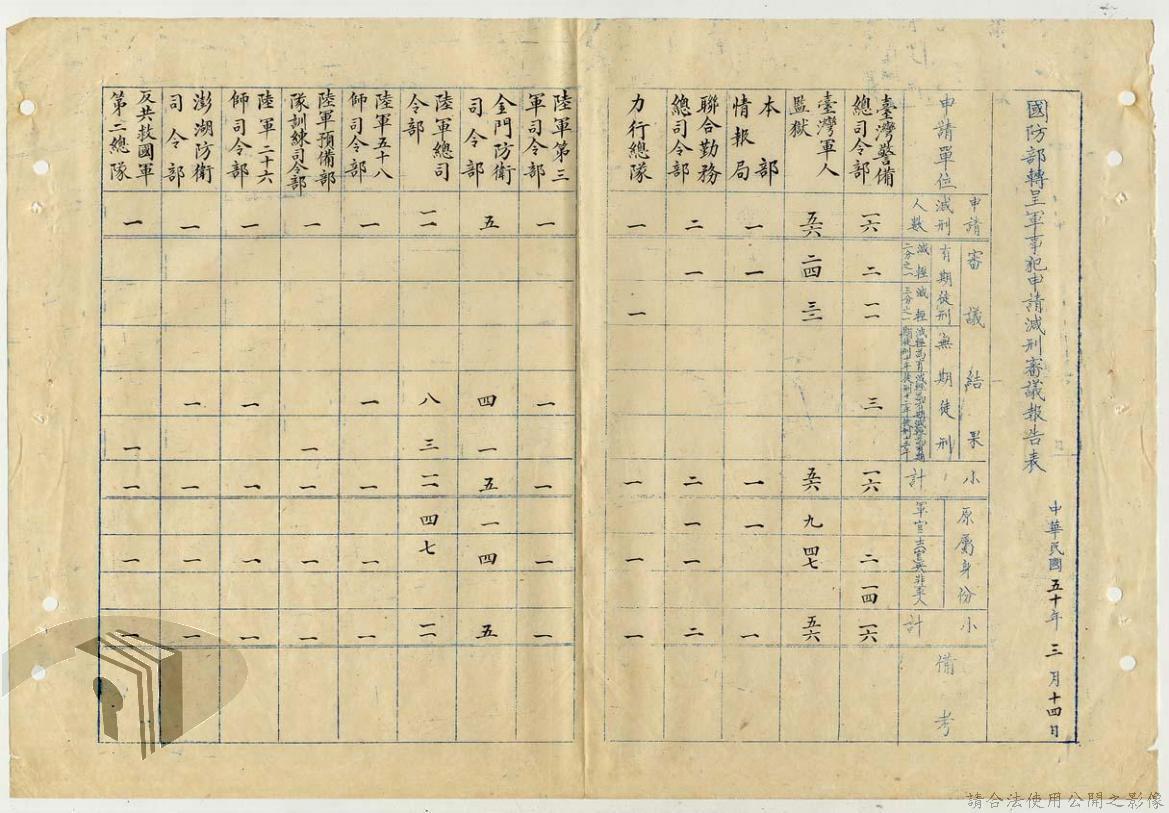 國防部轉呈軍事犯申請減刑審議報告表
中華民國五十年三月十四日
申請單位
申請減刑人數
審議結果
有期徒刑
減輕二分之一
減輕三分之一
無期徒刑
小計
原屬身份
軍官
士官兵
非軍人
小計
備考
臺灣警備總司令部 一六 二 一一 三 一六 二 一四 一六
臺灣軍人監獄 五六 二四 三二 五六 九 四七 五六
本部情報局 一 一 一 一 一
聯合勤務總司令部 二 一 二 一 一 二
力行總隊 一 一 一 一 一
陸軍第三軍司令部 一 一 一 一 一
金門防衛司令部 五 四 一 五 一 四 五
陸軍總司令部 一一 八 三 一一 四 七 一一
陸軍五十八師司令部 一 一 一 一 一
陸軍預備部隊訓練司令部 一 一 一 一 一
陸軍二十六師司令部 一 一 一 一 一
澎湖防衛司令部 一 一 一 一 一
反共救國軍第二總隊 一 一 一 一 一
請合法使用公開之影像